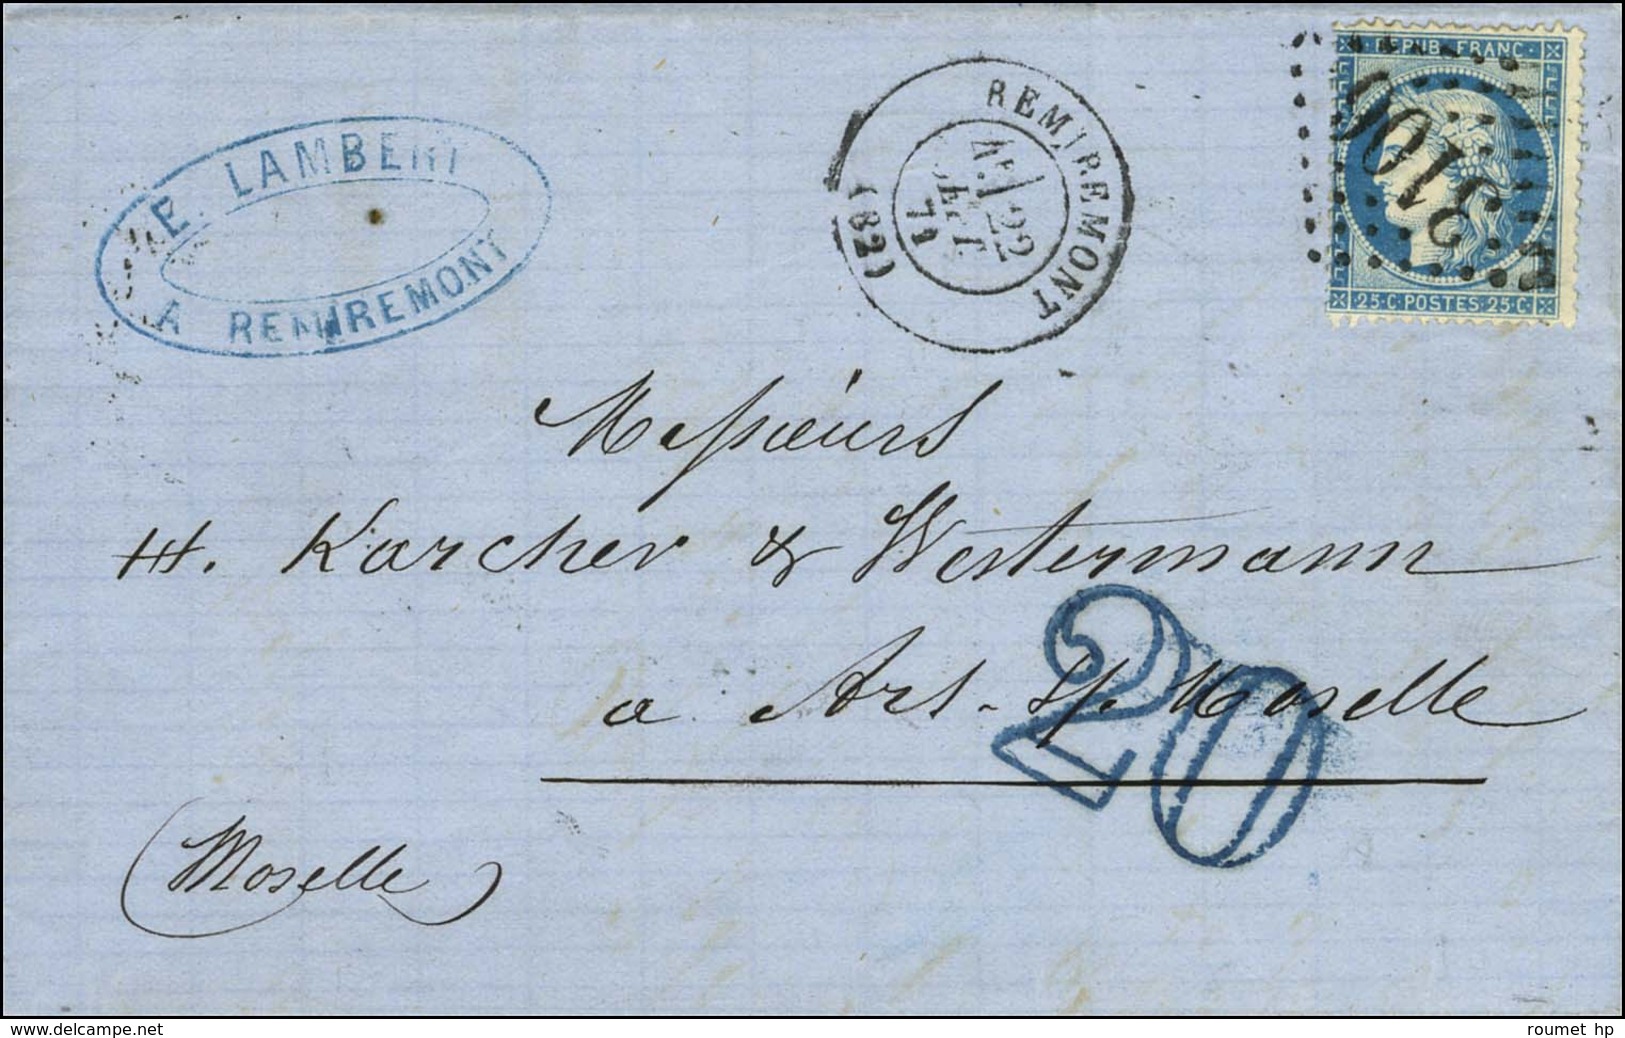 E. LAMBERT
A REMIREMONT
REMIREMONT
22
71
(82)
REPUB. FRANC
3106
25·C·POSTES·25·C·
Messieurs
H. Karcher & Westermann
a Ars - s/ Moselle
20
(Moselle)
www.delcampe.net
roumet hp